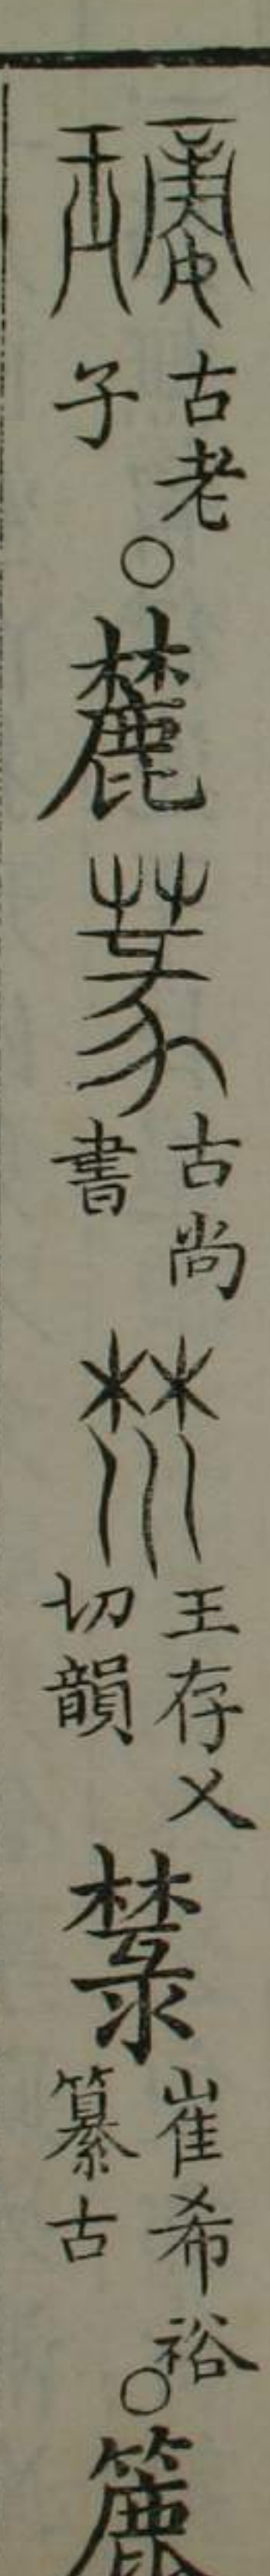 古老
子
○
麓
古尚
書
王存乂
切韻
禁
崔希裕
纂古
○
簏